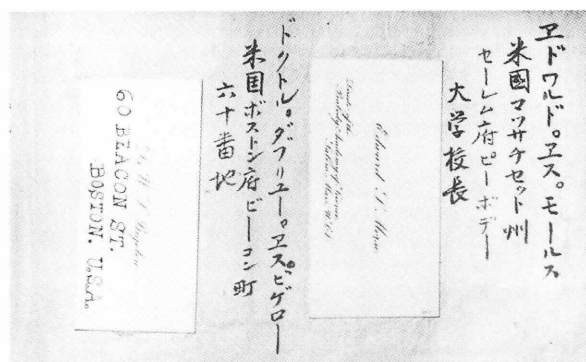 ヱドワルド。ヱス。モールス
米國マツサチセット州
セーレム府ピーボデー
大学校長
Edward S. Morse
Peabody Academy of Science
Salem, Mass. U.S.A.
ドクトル。ダフリユー。ヱス。ビゲロー
米国ボストン府ビーコン町
六十番地
W. S. Bigelow
60 BEACON ST.
BOSTON. U.S.A.